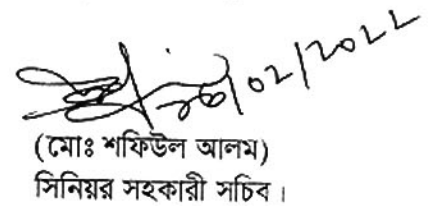 /০২/২০২২
(মোঃ শফিউল আলম)
সিনিয়র সহকারী সচিব।